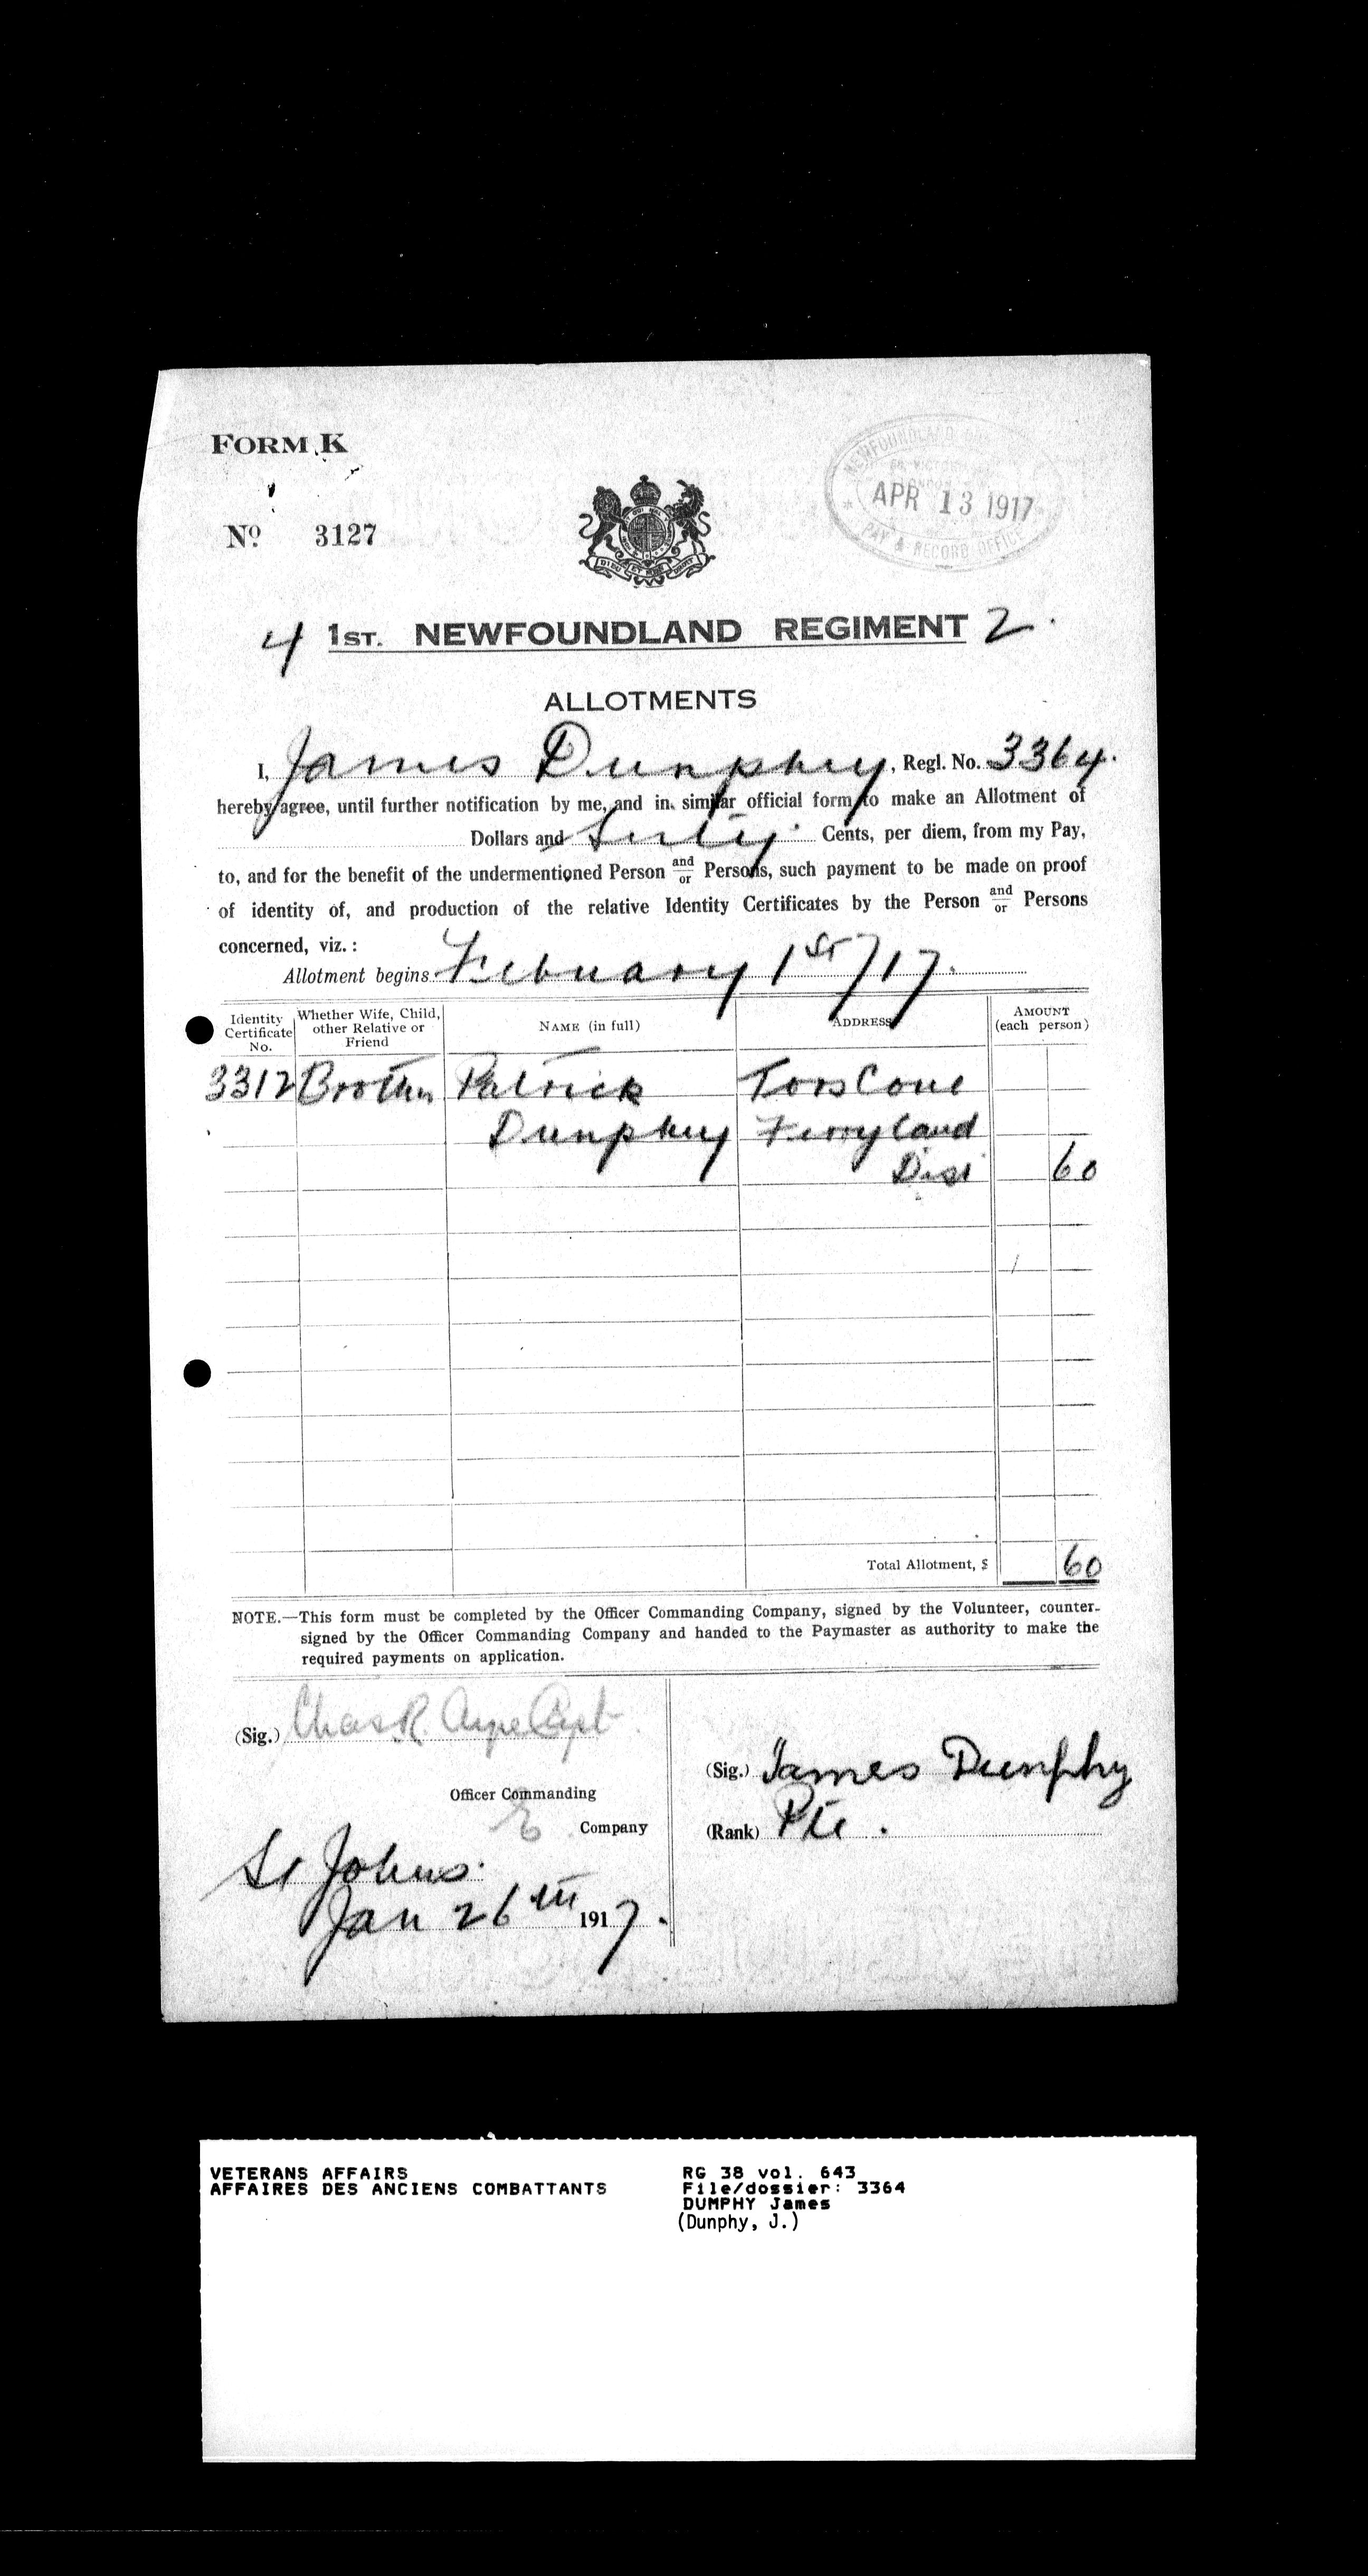 FORM K
NEWFOUNDLAND
APR 13 1917
PAY & RECORD OFFICE
No 3127
4 1ST. NEWFOUNDLAND REGIMENT 2.
ALLOTMENTS
I, James Dunphy, Regl. No. 3364.
hereby agree, until further notification by me, and in similar official form to make an Allotment of
Dollars and Sixty Cents, per diem, from my Pay,
to, and for the benefit of the undermentioned Person and/or Persons, such payment to be made on proof
of identity of, and production of the relative Identity Certificates by the Person and/or Persons
concerned, viz.:
Allotment begins February 1st/17.
Identity Certificate No. Whether Wife, Child, other Relative or Friend NAME (in full) ADDRESS AMOUNT (each person)
3312 Brother Patrick Tors Cove
Dunphy Ferryland
Dist 60
Total Allotment, $ 60
NOTE.—This form must be completed by the Officer Commanding Company, signed by the Volunteer, counter-
signed by the Officer Commanding Company and handed to the Paymaster as authority to make the
required payments on application.
(Sig.) Chas R. Ayre Capt
Officer Commanding
E Company
St Johns.
Jan 26th 1917.
(Sig.) James Dunphy
(Rank) Pte.
VETERANS AFFAIRS
AFFAIRES DES ANCIENS COMBATTANTS
RG 38 vol. 643
File/dossier: 3364
DUMPHY James
(Dunphy, J.)